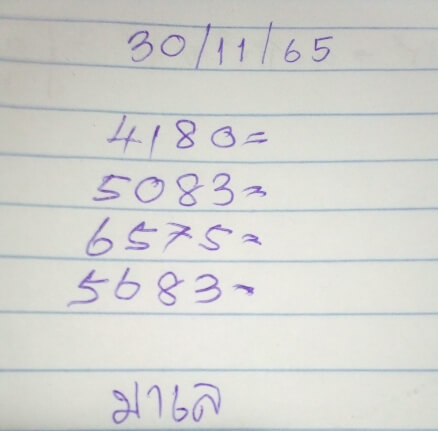 30/11/65
4180=
5083=
6575=
5683-
มาเล